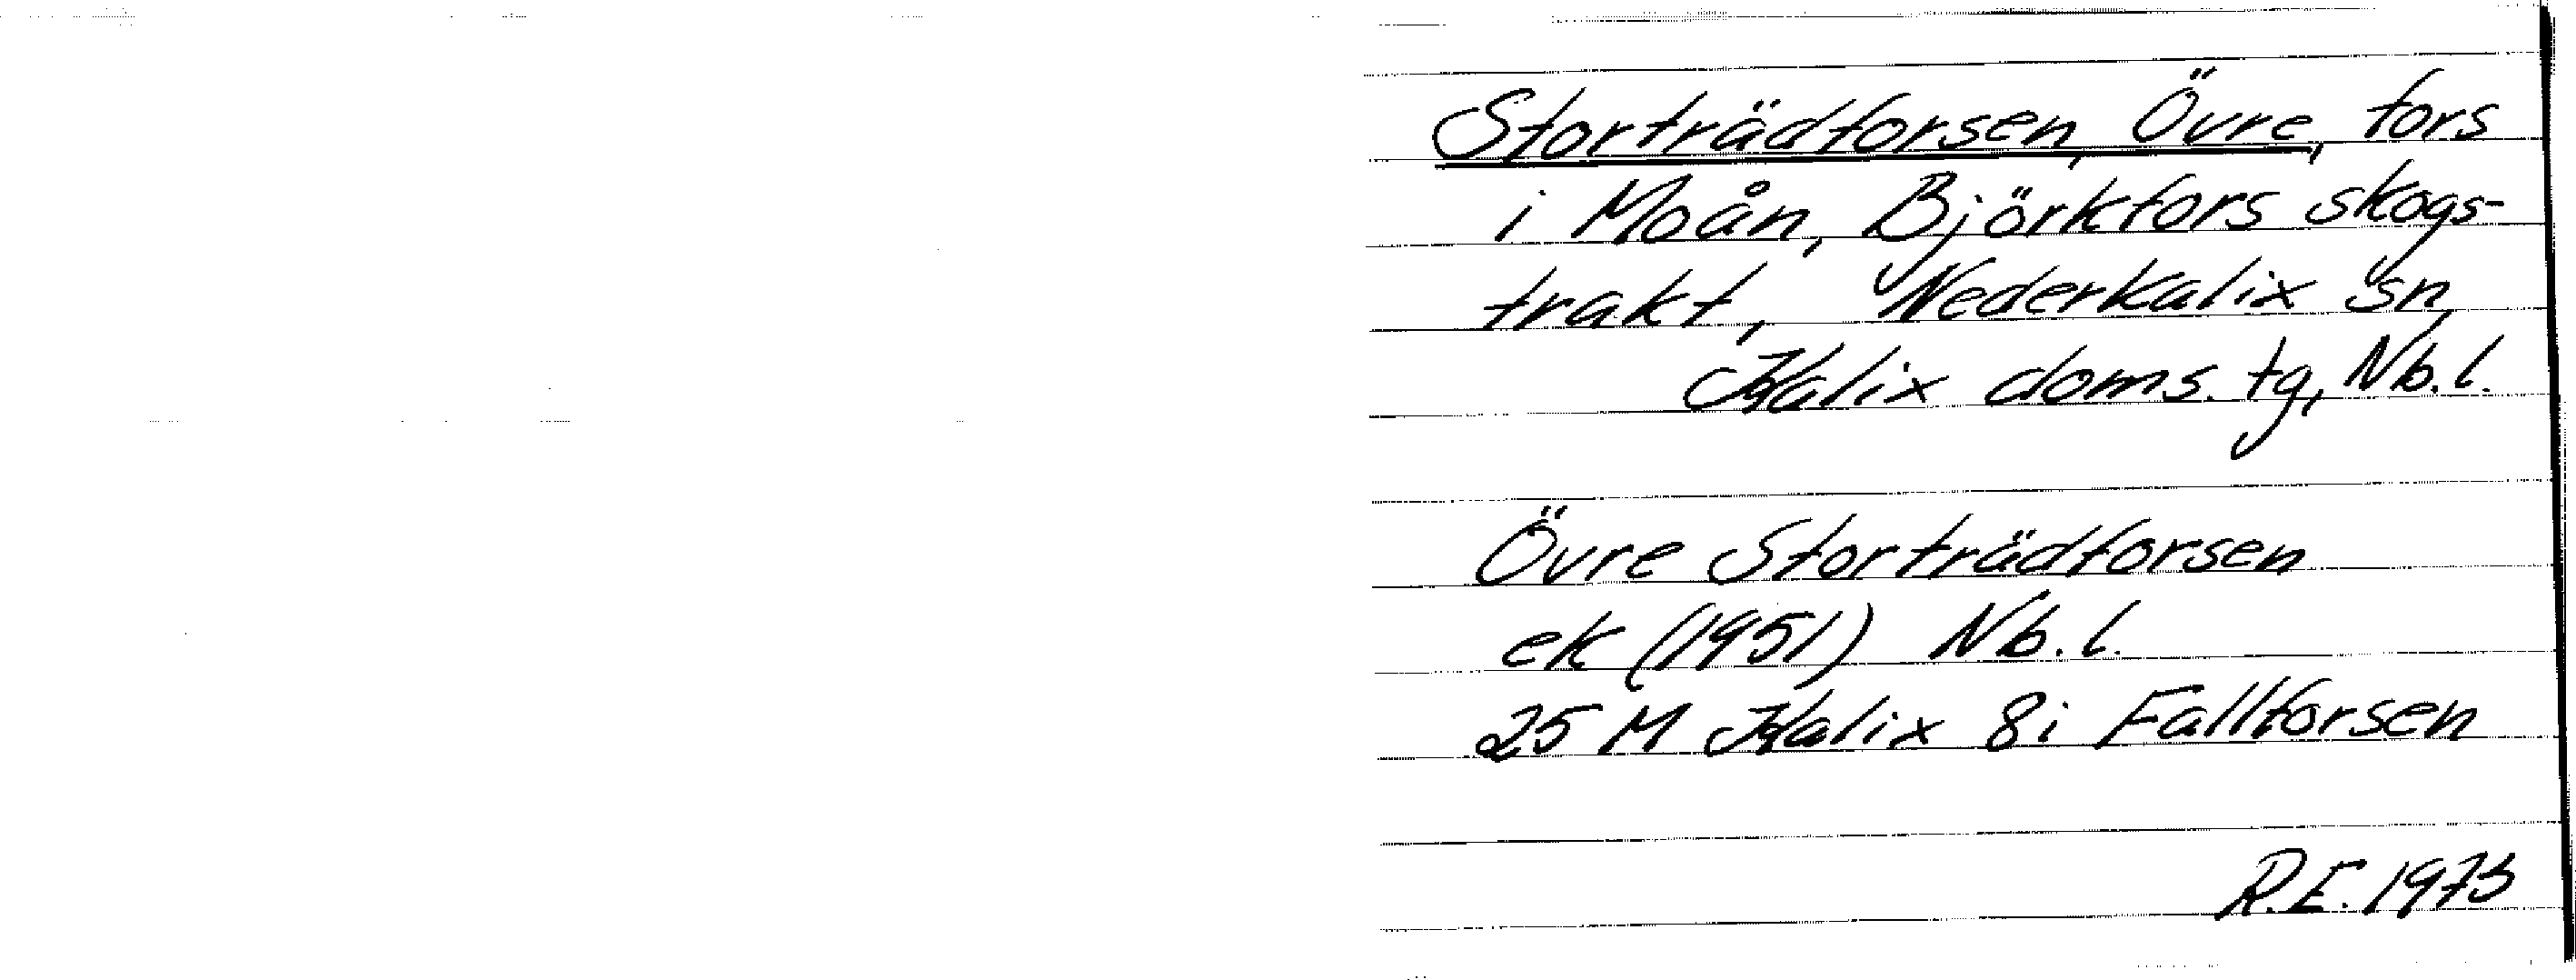 Storträdforsen, Övre, fors
i Moån, Björkfors skogs-
trakt, Nederkalix sn,
Kalix doms. tg, Nb. l.
Övre Storträdforsen
ek (1951) Nb. l.
25 M Kalix 8i Fallforsen
R.E. 1973